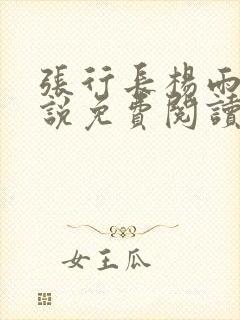 張行長楊雨
說免費閱讀
女王瓜